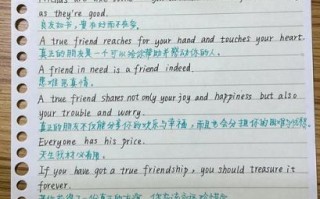 as they're good.
A true friend reaches for your hand and touches your heart.
真正的朋友是一个可以给你帮助并感动你的人。
A friend in need is a friend indeed.
患难见真情。
A true friend shares not only your joy and happiness but also
your trouble and worry.
真正的朋友不仅能分享你的欢乐与幸福，而且也会分担你的困难与忧愁。
Everyone has his price.
天生我材必有用。
If you have got a true friendship, you should treasure it
forever.